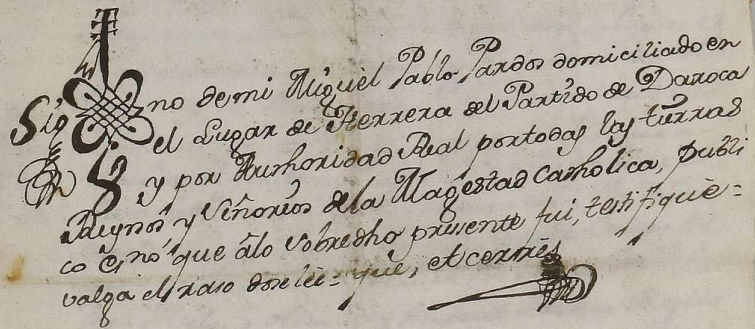 Sig no de mi Miguèl Pablo Pardos domiciliado en
el Lugar de Herrera del Partido de Daroca
y por Authoridad Real por todas las tierras
Reynos y Señorios de la Magestad Catholica, publi
co esno que álo sobredho presente fui, testifiquè =
valga el raso donde lee = què, et cerrè =